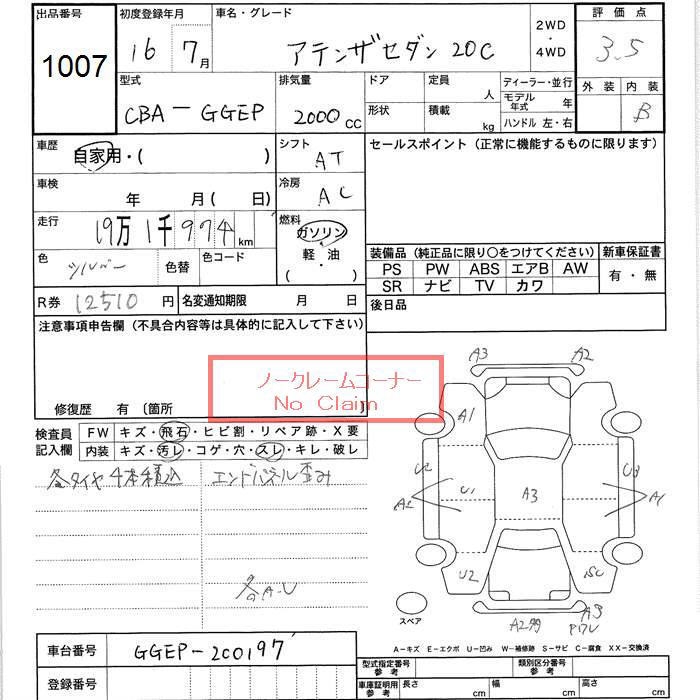 出品番号 初度登録年月 車名・グレード 2WD ・ 4WD 評価点
1007 16 7月 アテンザセダン 20C 3.5
型式 排気量 ドア 定員 人 ディーラー・並行 外装 内装
CBA-GGEP 2000cc 形状 積載 kg モデル年式 年 B
ハンドル 左・右
車歴 自家用・( ) シフト AT セールスポイント (正常に機能するものに限ります)
車検 年 月( 日) 冷房 AC
走行 19万1千974km 燃料 ガソリン 軽・油 ( )
色 シルバー 色替 色コード
装備品 (純正品に限り○をつけてください) 新車保証書
PS PW ABS エアB AW 有・無
SR ナビ TV カワ
R券 12510円 名変通知期限 月 日 後日品
注意事項申告欄 (不具合内容等は具体的に記入して下さい)
ノークレームコーナー
No Claim
修復歴 有 〔箇所 〕
検査員記入欄 FW キズ・飛石・ヒビ割・リペア跡・X要
内装 キズ・汚レ・コゲ・穴・スレ・キレ・破レ
冬タイヤ4本積込 エンドパネル歪み
各A・U
A3 A2
A1
U2 U3
A2 U1 A3 A1
U2 SC
スペア A2 A3
A-キズ E-エクボ U-凹み W-補修跡 S-サビ C-腐食 XX-交換済
車台番号 GGEP-200197
型式指定番号 参考 類別区分番号 参考
登録番号 車庫証明用 参考 長さ cm 幅 cm 高さ cm